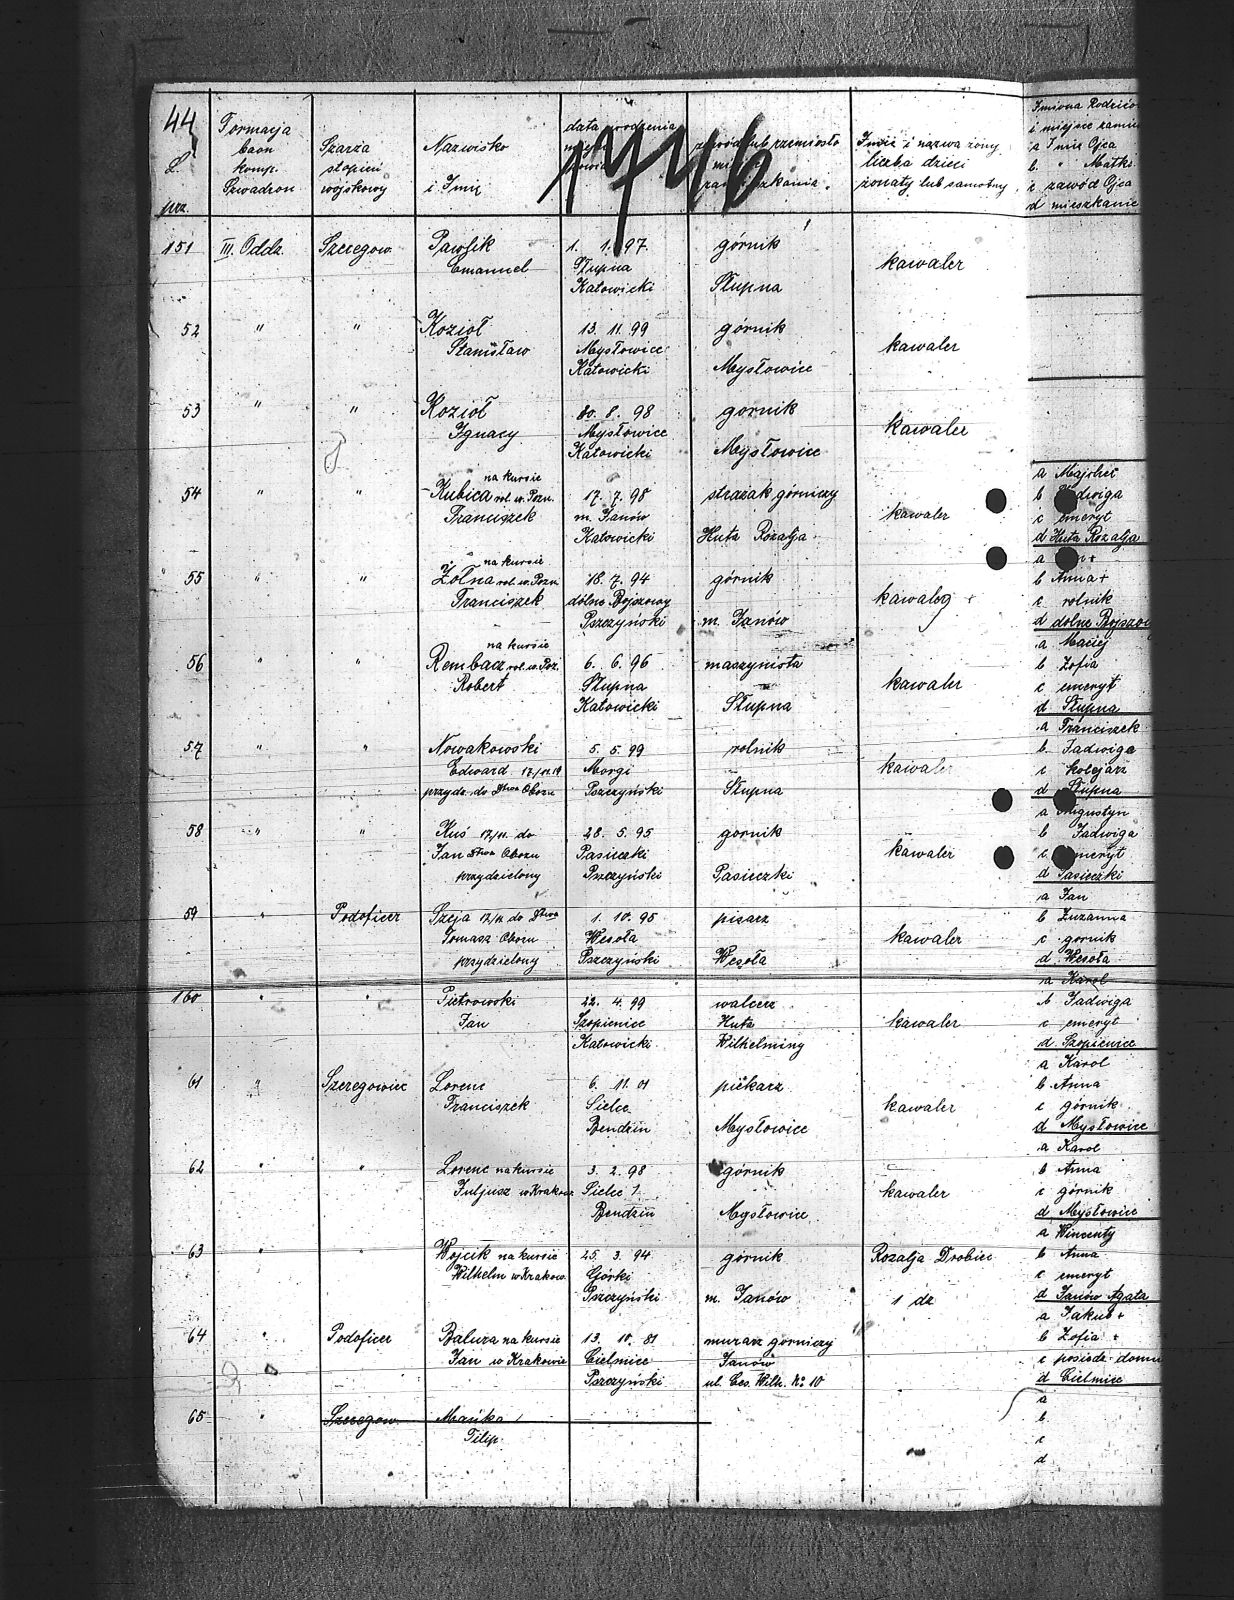 44
L.
prz.
Formacja
baon
komp.
Szwadron
Szarża
stopień
wojskowy
Nazwisko
i Imię
data urodzenia
1746
zawód lub rzemiosło
Imię i nazwa żony
liczba dzieci
żonaty lub samotny
Imiona Rodziców
i miejsce zamie
a Imię Ojca
b " Matki
c zawód Ojca
d mieszkanie
151 III. Oddz. Szeregow. Pawlik 1. 1. 97 górnik
Emanuel Słupna kawaler
Katowicki Słupna
52 " " Kozioł 13. 11. 99 górnik
Stanisław Mysłowice kawaler
Katowicki Mysłowice
53 " " Kozioł 30. 8. 98 gornik
Ignacy Mysłowice kawaler
Katowicki Mysłowice
na kursie a Majcher
54 " " Kubica rol. w. Pozn. 17. 7. 98 strażak górniczy b Jadwiga
Franciszek m. Janów kawaler c emeryt
Katowicki Huta Rozalja d Huta Rozalja
na kursie a
55 " " Żolna rol. w. Pozn. 18. 7. 94 górnik b Anna +
Franciszek dólne Bojszowy kawaler c rolnik
Pszczyński m. Janów d dolne Bojszow
na kursie a Maciej
56 " " Rembacz rol. w. Poz. 6. 6. 96 maszynista b Zofia
Robert Słupna kawaler c emeryt
Katowicki Słupna d Słupna
a Franciszek
57 " " Nowakowski 5. 5. 99 rolnik b. Jadwiga
Edward 17/11.19 Morgi kawaler c kolejarz
przydz. do Dtwa Obozu Pszczyński Słupna d Słupna
a Augustyn
58 " " Kuś 17/11. do 28. 5. 95 gornik b Jadwiga
Jan Dtwa Obozu Pasieczki kawaler c emeryt
przydzielony Pszczyński Pasieczki d Pasieczki
a Jan
59 " Podoficer Szeja 17/11 do Dtwa 1. 10. 95 pisarz b Zuzanna
Tomasz Obozu Wesoła kawaler c gornik
przydzielony Pszczyński Wesoła d Wesoła
a Karol
160 " " Pietrowski 22. 4. 99 walcerz b Jadwiga
Jan Szopienice Huta kawaler c emeryt
Katowicki Wilhelminy d. Szopienice
a Karol
61 " Szeregowiec Lorenc 6. 11. 01 piekarz b Anna
Franciszek Sielce kawaler c górnik
Bendzin Mysłowice d Mysłowice
a Karol
62 " " Lorenc na kursie 3. 2. 98 górnik b Anna
Juljusz w Krakow. Sielce kawaler c górnik
Bendzin Mysłowice d Mysłowice
a Wincenty
63 " " Wojcik na kursie 25. 3. 94 górnik Rozalja Drobiec b Anna
Wilhelm w Krakow. Górki c emeryt
Pszczyński m. Janów 1 dz d Janów Agata
a Jakub +
64 " Podoficer Baluza na kursie 13. 10. 81 murarz gorniczy b Zofia +
Jan w Krakowie Cielmice Janów c posiada domu
Pszczyński ul. Ces. Wilh. No 10 d Cielmice
65 " Szeregow. Mańka a
Filip b
c
d